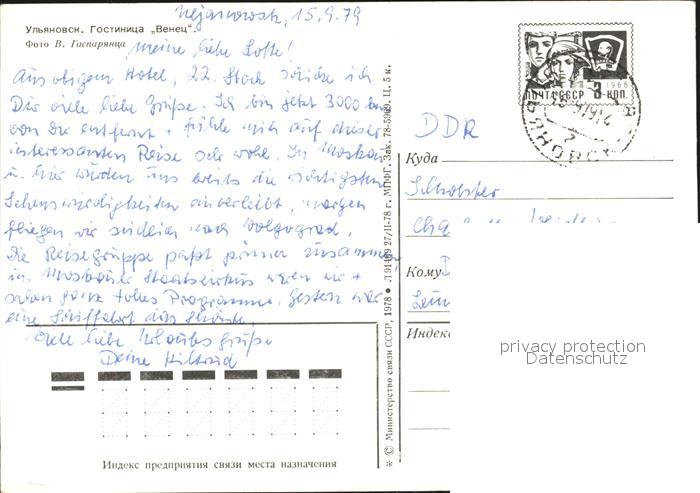 Uljanowsk, 15.9.79
Ульяновск. Гостиница „Венец“.
Фото В. Гаспарянца
Meine liebe Lotte!
Aus obigem Hotel, 22. Stock schicke ich
Dir viele liebe Grüße. Ich bin jetzt 3000 km
von Dir entfernt + fühle mich auf dieser
interessanten Reise sehr wohl. In Moskau
u. hier wurden uns bereits die wichtigsten
Sehenswürdigkeiten einverleibt, morgen
fliegen wir südlich nach Wolgograd.
Die Reisegruppe paßt prima zusammen,
im Moskauer Staatszirkus waren wir +
sahen ganz tolles Programm. Gestern war
eine Schiffahrt das Schönste.
Viele liebe Urlaubsgrüße
Deine Hiltrud
Индекс предприятия связи места назначения
* © Министерство связи СССР, 1978 • Л 91469 27/II-78 г. МПФГ. Зак. 78-5969. Ц. 5 к.
1966
ПОЧТА СССР 3 КОП.
DDR
Куда
Schwester
Кому
Индекс
privacy protection
Datenschutz